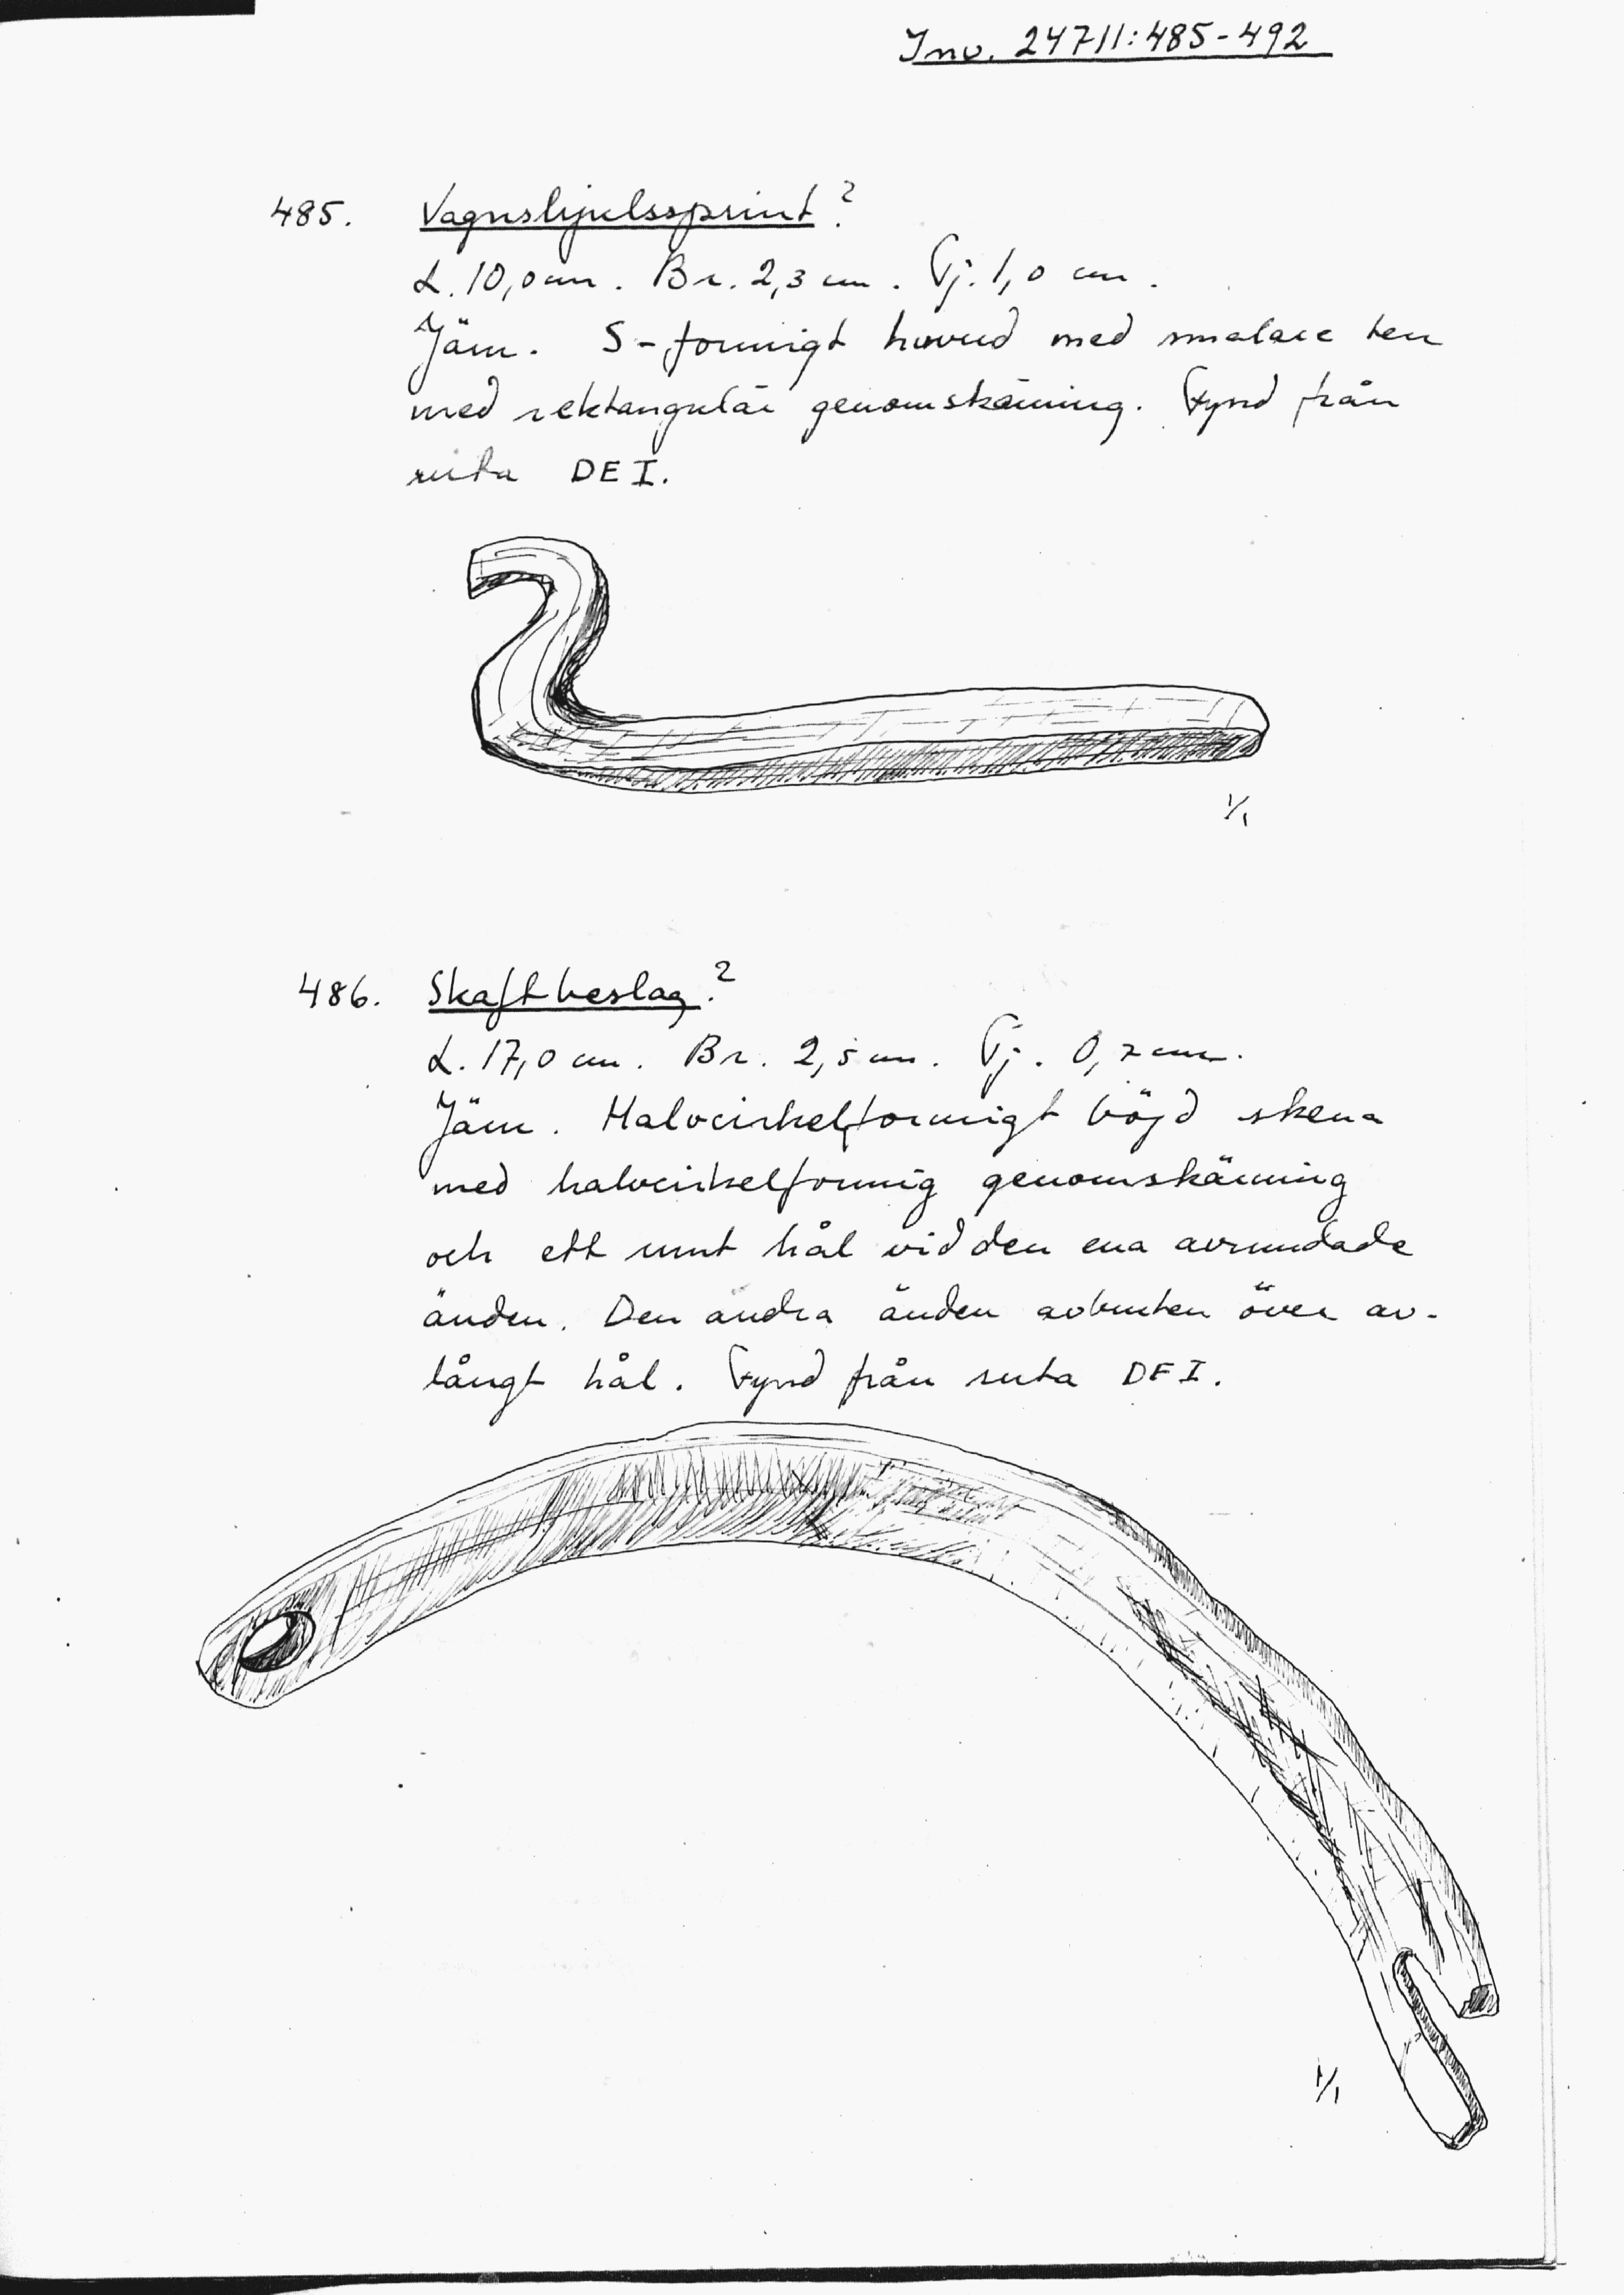 Inv. 24711:485-492
485. Vagnshjulssprint?
L. 10,0 cm. Br. 2,3 cm. Tj. 1,0 cm.
Järn. S-formigt huvud med smalare ten
med rektangulär genomskärning. Fynd från
ruta DEI.
1/1
486. Skaftbeslag?
L. 17,0 cm. Br. 2,5 cm. Tj. 0,7 cm.
Järn. Halvcirkelformigt böjd skena
med halvcirkelformig genomskärning
och ett runt hål vid den ena avrundade
änden. Den andra änden avbruten över av-
långt hål. Fynd från ruta DFI.
1/1